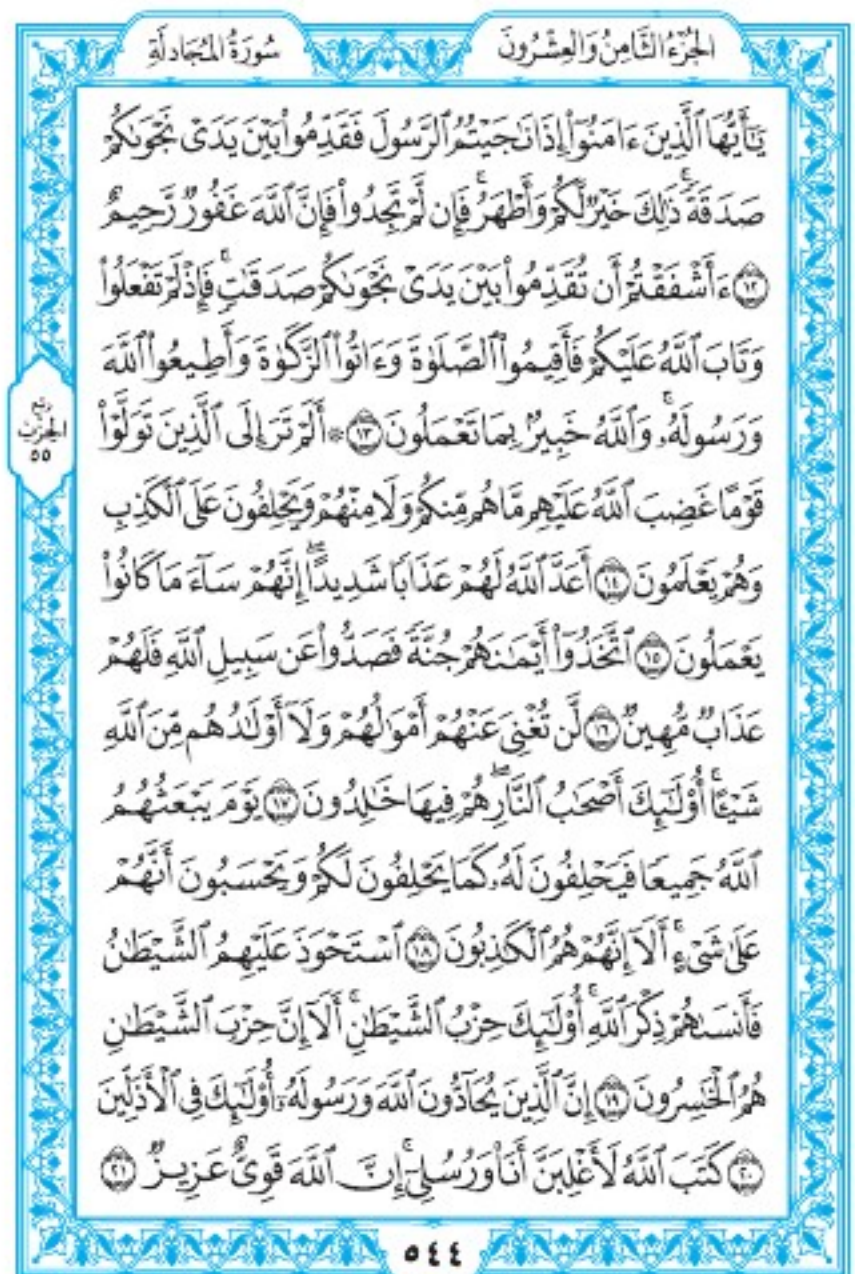 الجُزْءُ الثَّامِنُ وَالعِشْرُونَ
سُورَةُ المُجَادلَةِ
يَٰٓأَيُّهَا ٱلَّذِينَ ءَامَنُوٓاْ إِذَا نَٰجَيۡتُمُ ٱلرَّسُولَ فَقَدِّمُواْ بَيۡنَ يَدَيۡ نَجۡوَىٰكُمۡ
صَدَقَةٗۚ ذَٰلِكَ خَيۡرٞ لَّكُمۡ وَأَطۡهَرُۚ فَإِن لَّمۡ تَجِدُواْ فَإِنَّ ٱللَّهَ غَفُورٞ رَّحِيمٌ
١٢ ءَأَشۡفَقۡتُمۡ أَن تُقَدِّمُواْ بَيۡنَ يَدَيۡ نَجۡوَىٰكُمۡ صَدَقَٰتٖۚ فَإِذۡ لَمۡ تَفۡعَلُواْ
وَتَابَ ٱللَّهُ عَلَيۡكُمۡ فَأَقِيمُواْ ٱلصَّلَوٰةَ وَءَاتُواْ ٱلزَّكَوٰةَ وَأَطِيعُواْ ٱللَّهَ
وَرَسُولَهُۥۚ وَٱللَّهُ خَبِيرُۢ بِمَا تَعۡمَلُونَ ١٣ ۞ أَلَمۡ تَرَ إِلَى ٱلَّذِينَ تَوَلَّوۡاْ
قَوۡمًا غَضِبَ ٱللَّهُ عَلَيۡهِم مَّا هُم مِّنكُمۡ وَلَا مِنۡهُمۡ وَيَحۡلِفُونَ عَلَى ٱلۡكَذِبِ
وَهُمۡ يَعۡلَمُونَ ١٤ أَعَدَّ ٱللَّهُ لَهُمۡ عَذَابٗا شَدِيدًاۖ إِنَّهُمۡ سَآءَ مَا كَانُواْ
يَعۡمَلُونَ ١٥ ٱتَّخَذُوٓاْ أَيۡمَٰنَهُمۡ جُنَّةٗ فَصَدُّواْ عَن سَبِيلِ ٱللَّهِ فَلَهُمۡ
عَذَابٞ مُّهِينٞ ١٦ لَّن تُغۡنِيَ عَنۡهُمۡ أَمۡوَٰلُهُمۡ وَلَآ أَوۡلَٰدُهُم مِّنَ ٱللَّهِ
شَيۡـًٔاۚ أُوْلَٰٓئِكَ أَصۡحَٰبُ ٱلنَّارِۖ هُمۡ فِيهَا خَٰلِدُونَ ١٧ يَوۡمَ يَبۡعَثُهُمُ
ٱللَّهُ جَمِيعٗا فَيَحۡلِفُونَ لَهُۥ كَمَا يَحۡلِفُونَ لَكُمۡ وَيَحۡسَبُونَ أَنَّهُمۡ
عَلَىٰ شَيۡءٍۚ أَلَآ إِنَّهُمۡ هُمُ ٱلۡكَٰذِبُونَ ١٨ ٱسۡتَحۡوَذَ عَلَيۡهِمُ ٱلشَّيۡطَٰنُ
فَأَنسَىٰهُمۡ ذِكۡرَ ٱللَّهِۚ أُوْلَٰٓئِكَ حِزۡبُ ٱلشَّيۡطَٰنِۚ أَلَآ إِنَّ حِزۡبَ ٱلشَّيۡطَٰنِ
هُمُ ٱلۡخَٰسِرُونَ ١٩ إِنَّ ٱلَّذِينَ يُحَآدُّونَ ٱللَّهَ وَرَسُولَهُۥٓ أُوْلَٰٓئِكَ فِي ٱلۡأَذَلِّينَ
٢٠ كَتَبَ ٱللَّهُ لَأَغۡلِبَنَّ أَنَا۠ وَرُسُلِيٓۚ إِنَّ ٱللَّهَ قَوِيٌّ عَزِيزٞ ٢١
ربع
الحزب
٥٥
٥٤٤